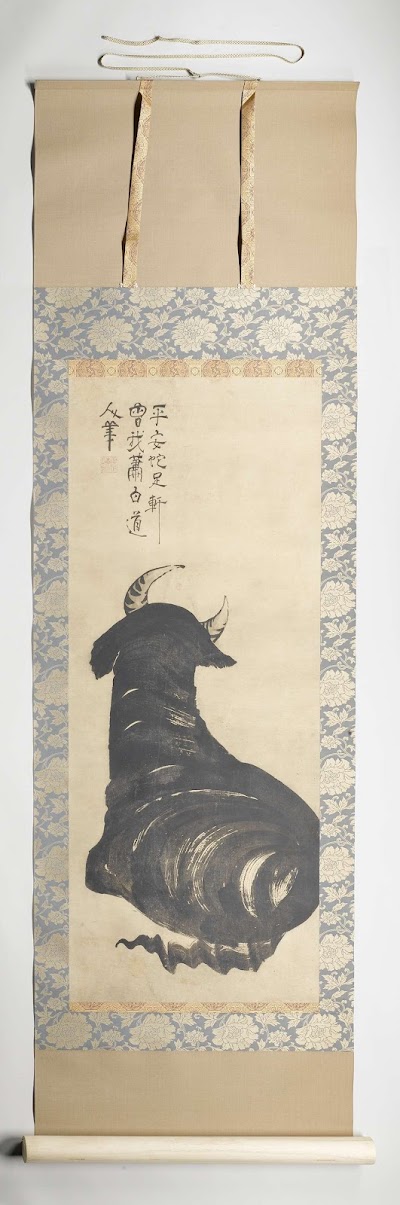 平安蛇足軒
曾我蕭白道
人筆